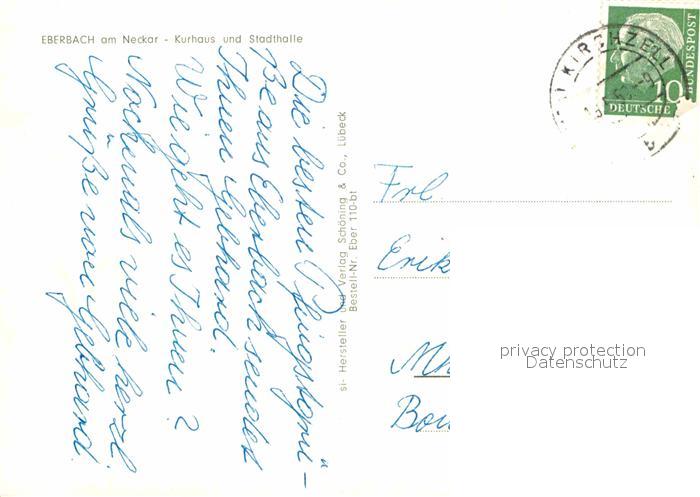 EBERBACH am Neckar - Kurhaus und Stadthalle
Die besten Pfingstgrü-
ße aus Eberbach sendet
Ihnen Gebhard.
Wie geht es Ihnen?
Nochmals viele herzl.
Grüße von Gebhard.
si- Hersteller und Verlag Schöning & Co., Lübeck
Bestell-Nr. Eber 110-bt
KIRCHZELL
10
DEUTSCHE
BUNDESPOST
Frl.
Erik
privacy protection
Datenschutz